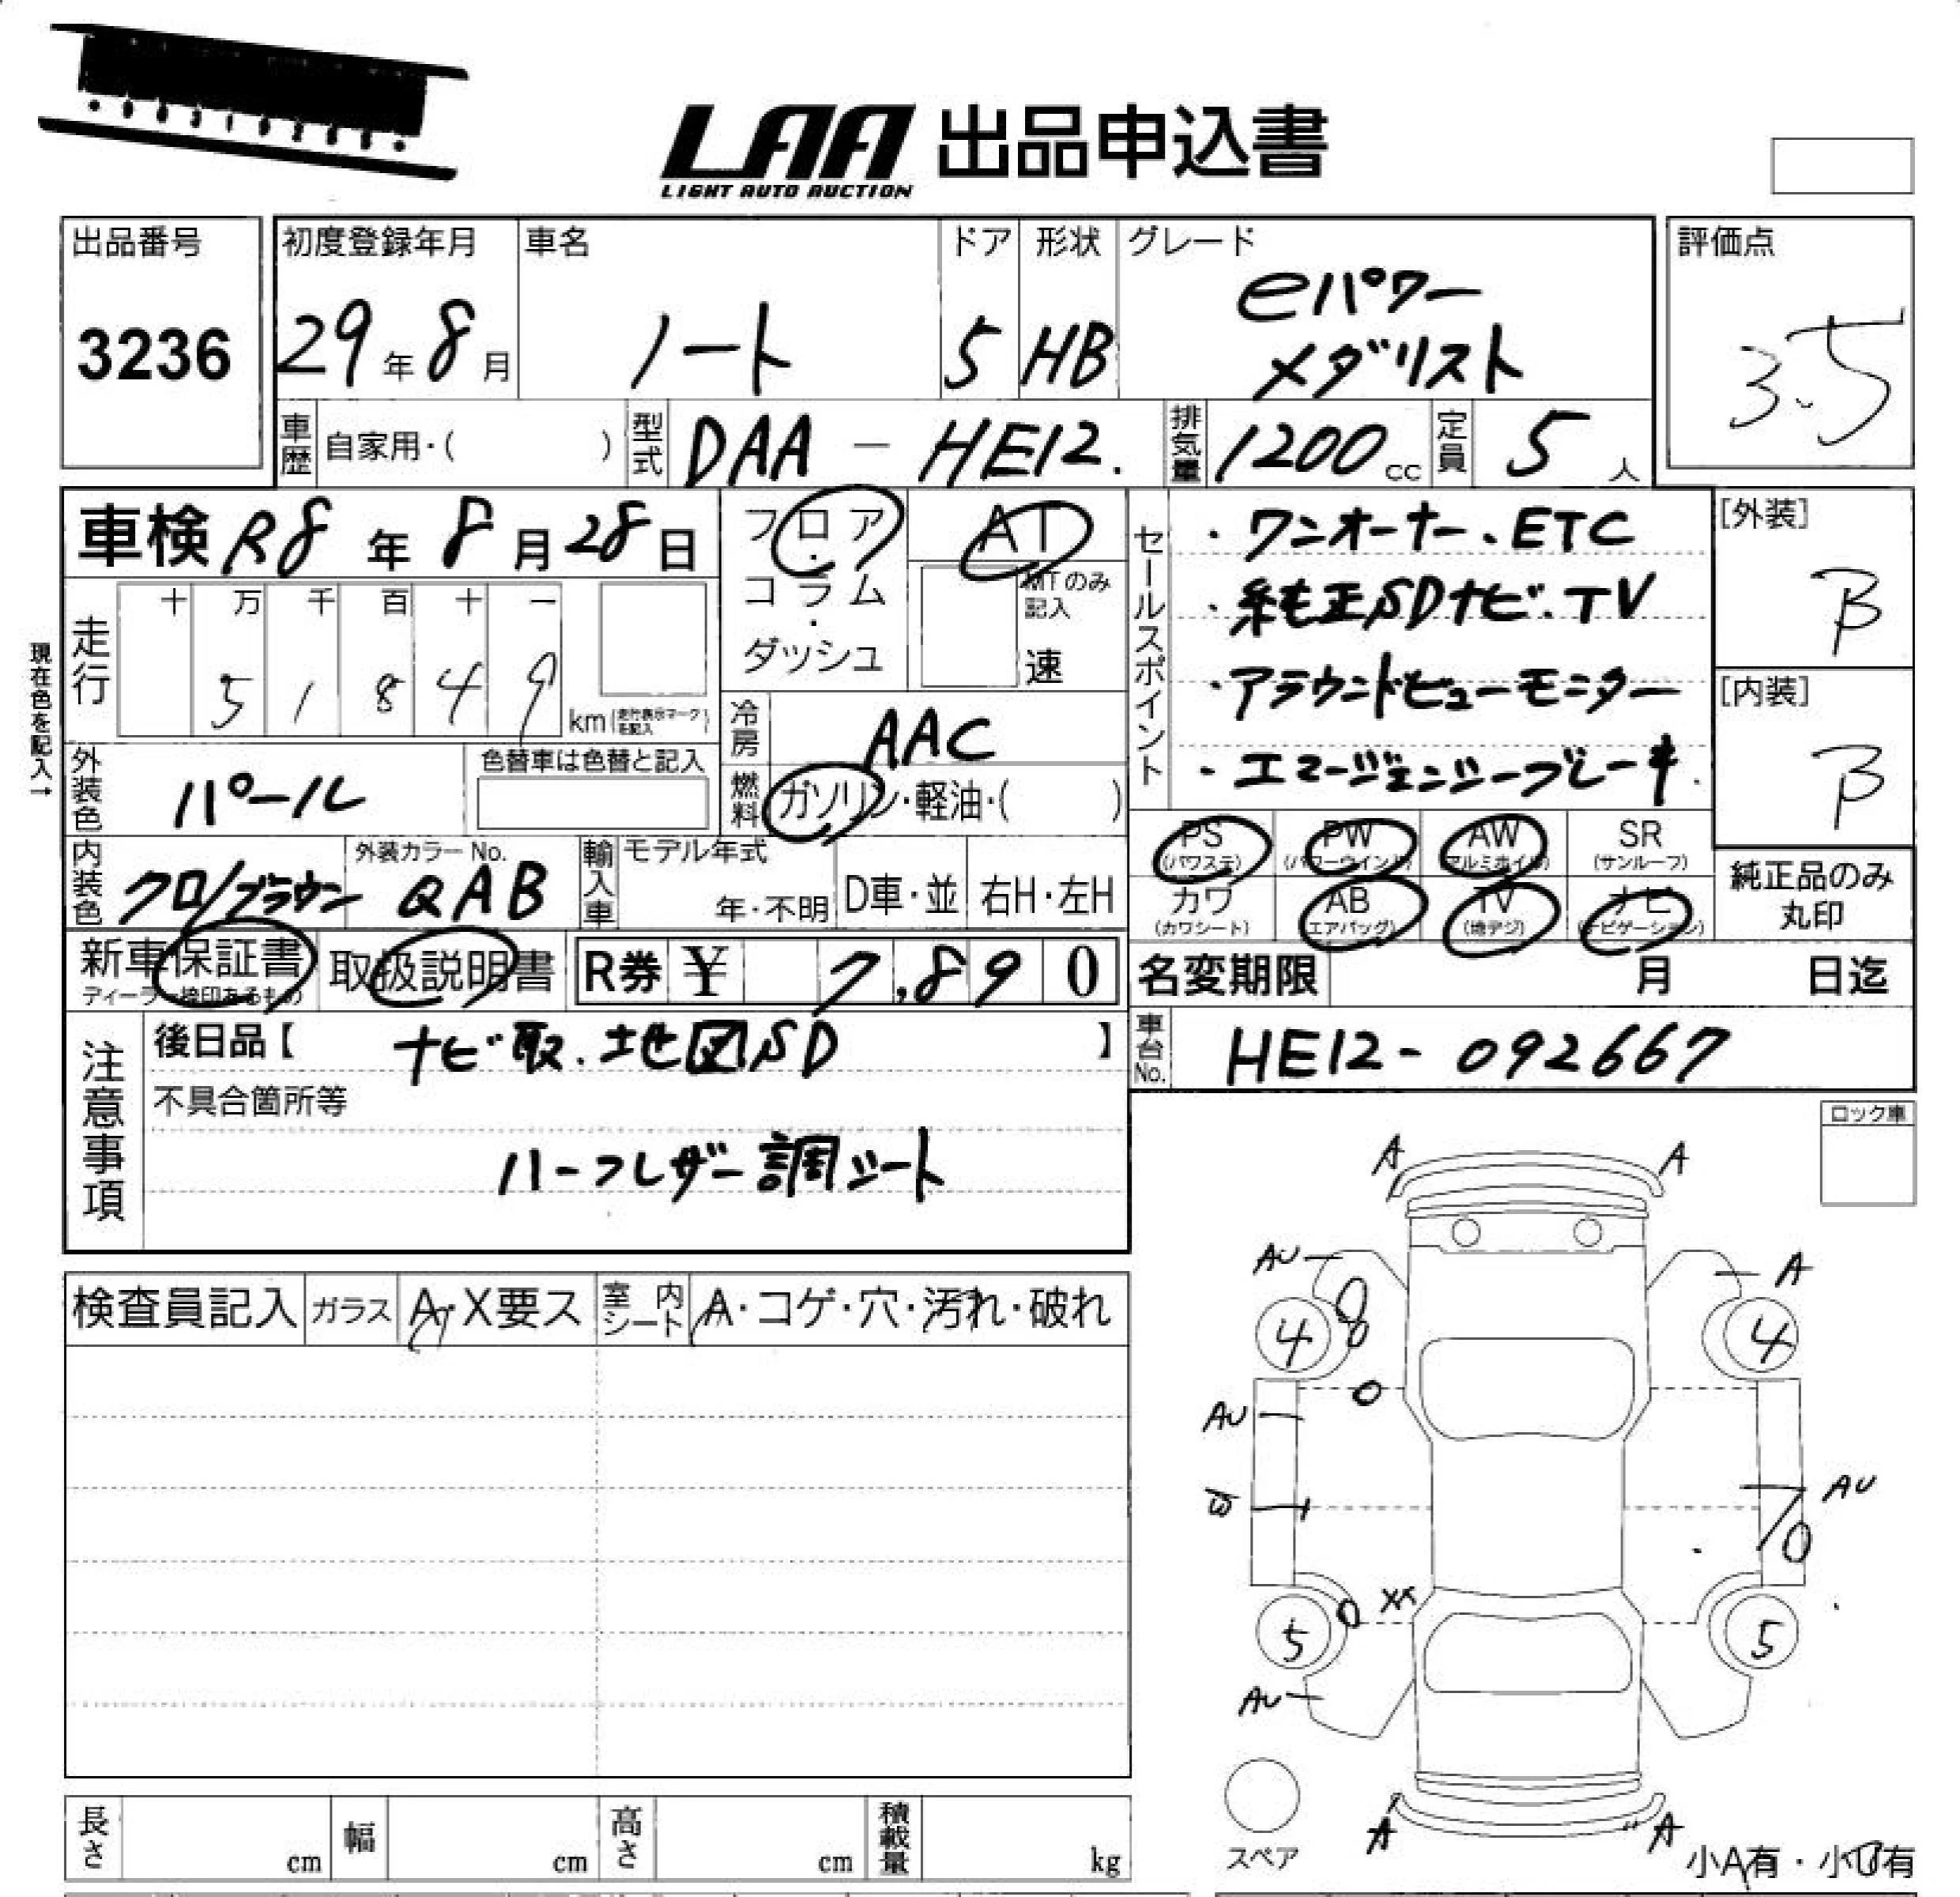 LAA 出品申込書
LIGHT AUTO AUCTION
出品番号
3236
初度登録年月
29年8月
車名
ノート
ドア
5
形状
HB
グレード
eパワー
メダリスト
評価点
3.5
車歴 自家用・( )
型式 DAA - HE12.
排気量 1200cc
定員 5人
車検 R8年8月28日
フロア・コラム・ダッシュ
AT
MTのみ記入
速
セールスポイント
・ワンオーナー、ETC
・純正SDナビ・TV
・アラウンドビューモニター
・エマージェンシーブレーキ
[外装]
B
[内装]
B
現在色を記入→
走行
十 万 千 百 十 一
5 1 8 4 9
km(走行表示マークを記入)
冷房 AAC
燃料 ガソリン・軽油・( )
外装色 パール
色替車は色替と記入
内装色 クロ/ブラウン
外装カラーNo.
QAB
輸入車
モデル年式
年・不明
D車・並
右H・左H
PS (パワステ)
PW (パワーウインド)
AW (アルミホイル)
SR (サンルーフ)
カワ (カワシート)
AB (エアバッグ)
TV (地デジ)
ナビ (ナビゲーション)
純正品のみ
丸印
新車保証書
ディーラー捺印あるもの
取扱説明書
R券 ¥ 7,890
名変期限 月 日迄
車台No. HE12-092667
注意事項
後日品【 ナビ取、地図SD 】
不具合箇所等
ハーフレザー調シート
ロック車
検査員記入
ガラス A・X要ス
室内シート A・コゲ・穴・汚れ・破れ
A A
AU A
4 8 4
AU
AU
XX
5 5
AU
スペア
A A
小A有・小U有
長さ cm
幅 cm
高さ cm
積載量 kg